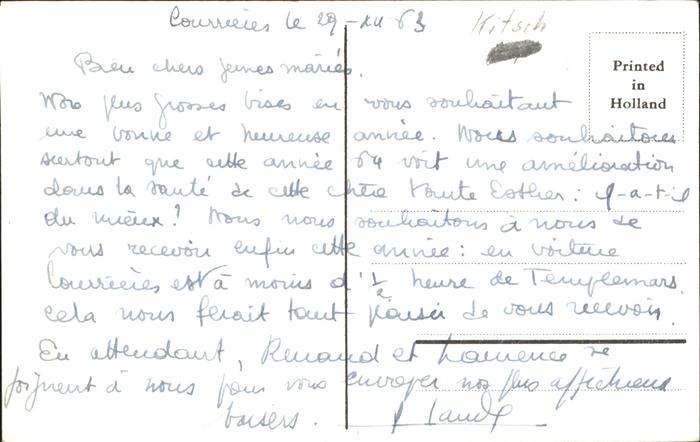 Courrières le 29-XII 63
Kitsch
Printed
in
Holland
Bien chers jeunes mariés.
Nos plus grosses bises en vous souhaitant
une bonne et heureuse année. Nous souhaitons
surtout que cette année 64 voit une amélioration
dans la santé de cette chère Tante Esther : y-a-t-il
du mieux ? Nous nous souhaitons à nous de
vous recevoir enfin cette année : en voiture
Courrières est à moins d'1/2 heure de Templemars.
cela nous ferait tant plaisir de vous recevoir.
En attendant, Renaud et Laurence se
joignent à nous pour vous envoyer nos plus affectueux
baisers.